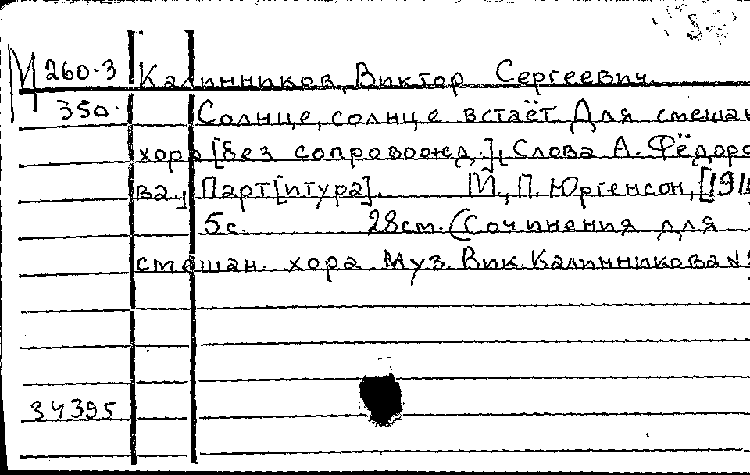 М 260-3 Калинников, Виктор Сергеевич.
350. Солнце, солнце встаёт. Для смешан
хора [без сопровожд.], Слова А. Фёдоро
ва., Парт[итура]. М., П. Юргенсон, [191
5с. 28см. (Сочинения для
смешан. хора Муз. Вик. Калинникова
34395